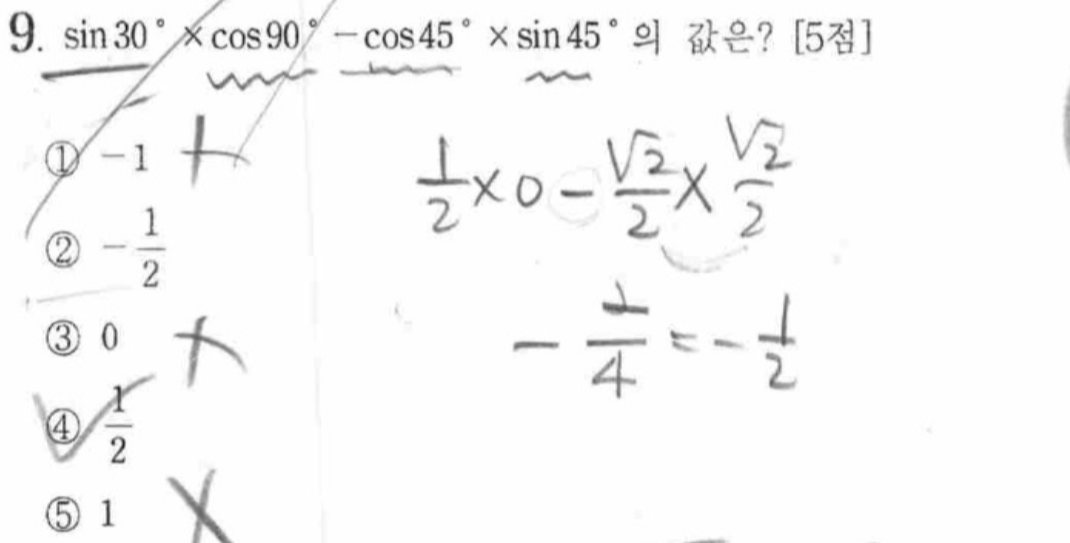 9. sin30° × cos90° − cos45° × sin45° 의 값은? [5점]
① −1
② −1/2
③ 0
④ 1/2
⑤ 1
1/2 × 0 − √2/2 × √2/2
− 2/4 = − 1/2